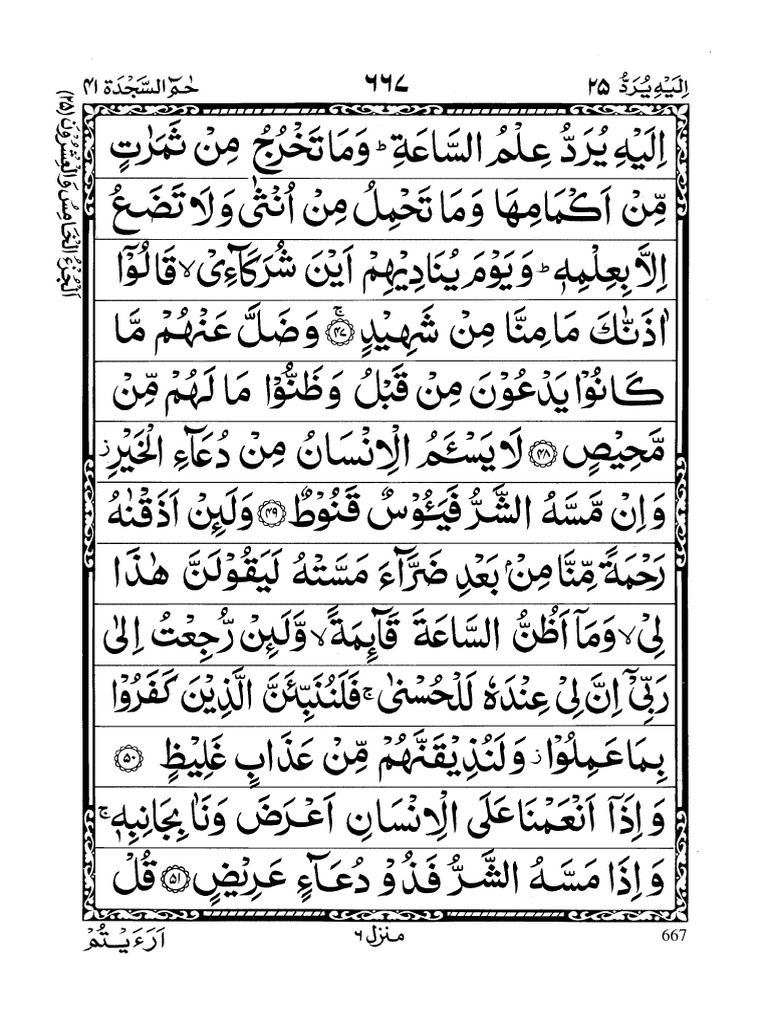 اِلَيْهِ يُرَدُّ ٢٥
٦٦٧
حٰمٓ السَّجْدَة ٤١
اَلْجُزْءُ الْخَامِسُ وَالْعِشْرُوْنَ (٢٥)
اِلَيْهِ يُرَدُّ عِلْمُ السَّاعَةِ ؕ وَمَا تَخْرُجُ مِنْ ثَمَرٰتٍ
مِّنْ اَكْمَامِهَا وَمَا تَحْمِلُ مِنْ اُنْثٰى وَلَا تَضَعُ
اِلَّا بِعِلْمِهٖ ؕ وَيَوْمَ يُنَادِيْهِمْ اَيْنَ شُرَكَآءِىْ ۙ قَالُوْٓا
اٰذَنّٰكَ مَا مِنَّا مِنْ شَهِيْدٍ ۚ ﴿٤٧﴾ وَضَلَّ عَنْهُمْ مَّا
كَانُوْا يَدْعُوْنَ مِنْ قَبْلُ وَظَنُّوْا مَا لَهُمْ مِّنْ
مَّحِيْصٍ ﴿٤٨﴾ لَا يَسْـَٔمُ الْاِنْسَانُ مِنْ دُعَآءِ الْخَيْرِ ز
وَاِنْ مَّسَّهُ الشَّرُّ فَيَـُٔوْسٌ قَنُوْطٌ ﴿٤٩﴾ وَلَئِنْ اَذَقْنٰهُ
رَحْمَةً مِّنَّا مِنْۢ بَعْدِ ضَرَّآءَ مَسَّتْهُ لَيَقُوْلَنَّ هٰذَا
لِىْ ۙ وَمَآ اَظُنُّ السَّاعَةَ قَآئِمَةً ۙ وَّلَئِنْ رُّجِعْتُ اِلٰى
رَبِّىْٓ اِنَّ لِىْ عِنْدَهٗ لَلْحُسْنٰى ۚ فَلَنُنَبِّئَنَّ الَّذِيْنَ كَفَرُوْا
بِمَا عَمِلُوْا ز وَلَنُذِيْقَنَّهُمْ مِّنْ عَذَابٍ غَلِيْظٍ ﴿٥٠﴾
وَاِذَآ اَنْعَمْنَا عَلَى الْاِنْسَانِ اَعْرَضَ وَنَاٰ بِجَانِبِهٖ ۚ
وَاِذَا مَسَّهُ الشَّرُّ فَذُوْ دُعَآءٍ عَرِيْضٍ ﴿٥١﴾ قُلْ
667
منزل ٦
اَرَءَيْتُمْ